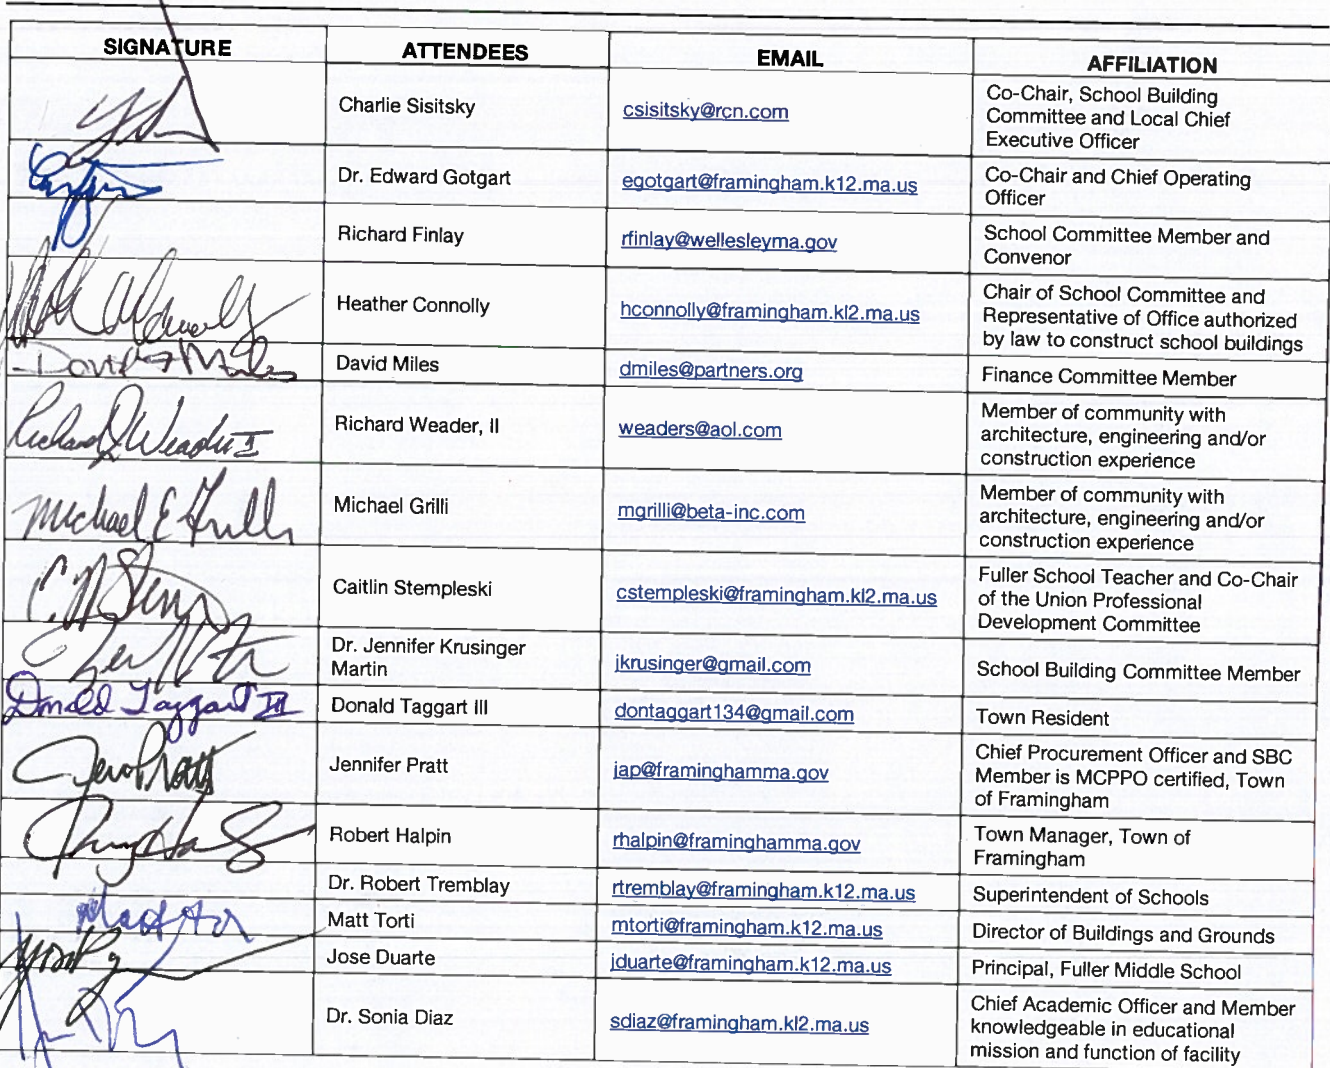 SIGNATURE ATTENDEES EMAIL AFFILIATION
Charlie Sisitsky csisitsky@rcn.com Co-Chair, School Building
Committee and Local Chief
Executive Officer
Dr. Edward Gotgart egotgart@framingham.k12.ma.us Co-Chair and Chief Operating
Officer
Richard Finlay rfinlay@wellesleyma.gov School Committee Member and
Convenor
Heather Connolly hconnolly@framingham.kl2.ma.us Chair of School Committee and
Representative of Office authorized
by law to construct school buildings
David Miles David Miles dmiles@partners.org Finance Committee Member
Richard J Weader II Richard Weader, II weaders@aol.com Member of community with
architecture, engineering and/or
construction experience
Michael E Grilli Michael Grilli mgrilli@beta-inc.com Member of community with
architecture, engineering and/or
construction experience
Caitlin Stempleski cstempleski@framingham.kl2.ma.us Fuller School Teacher and Co-Chair
of the Union Professional
Development Committee
Dr. Jennifer Krusinger
Martin jkrusinger@gmail.com School Building Committee Member
Donald Taggart III Donald Taggart III dontaggart134@gmail.com Town Resident
Jennifer Pratt jap@framinghamma.gov Chief Procurement Officer and SBC
Member is MCPPO certified, Town
of Framingham
Robert Halpin rhalpin@framinghamma.gov Town Manager, Town of
Framingham
Dr. Robert Tremblay rtremblay@framingham.k12.ma.us Superintendent of Schools
Matt Torti mtorti@framingham.k12.ma.us Director of Buildings and Grounds
Jose Duarte jduarte@framingham.k12.ma.us Principal, Fuller Middle School
Dr. Sonia Diaz sdiaz@framingham.kl2.ma.us Chief Academic Officer and Member
knowledgeable in educational
mission and function of facility